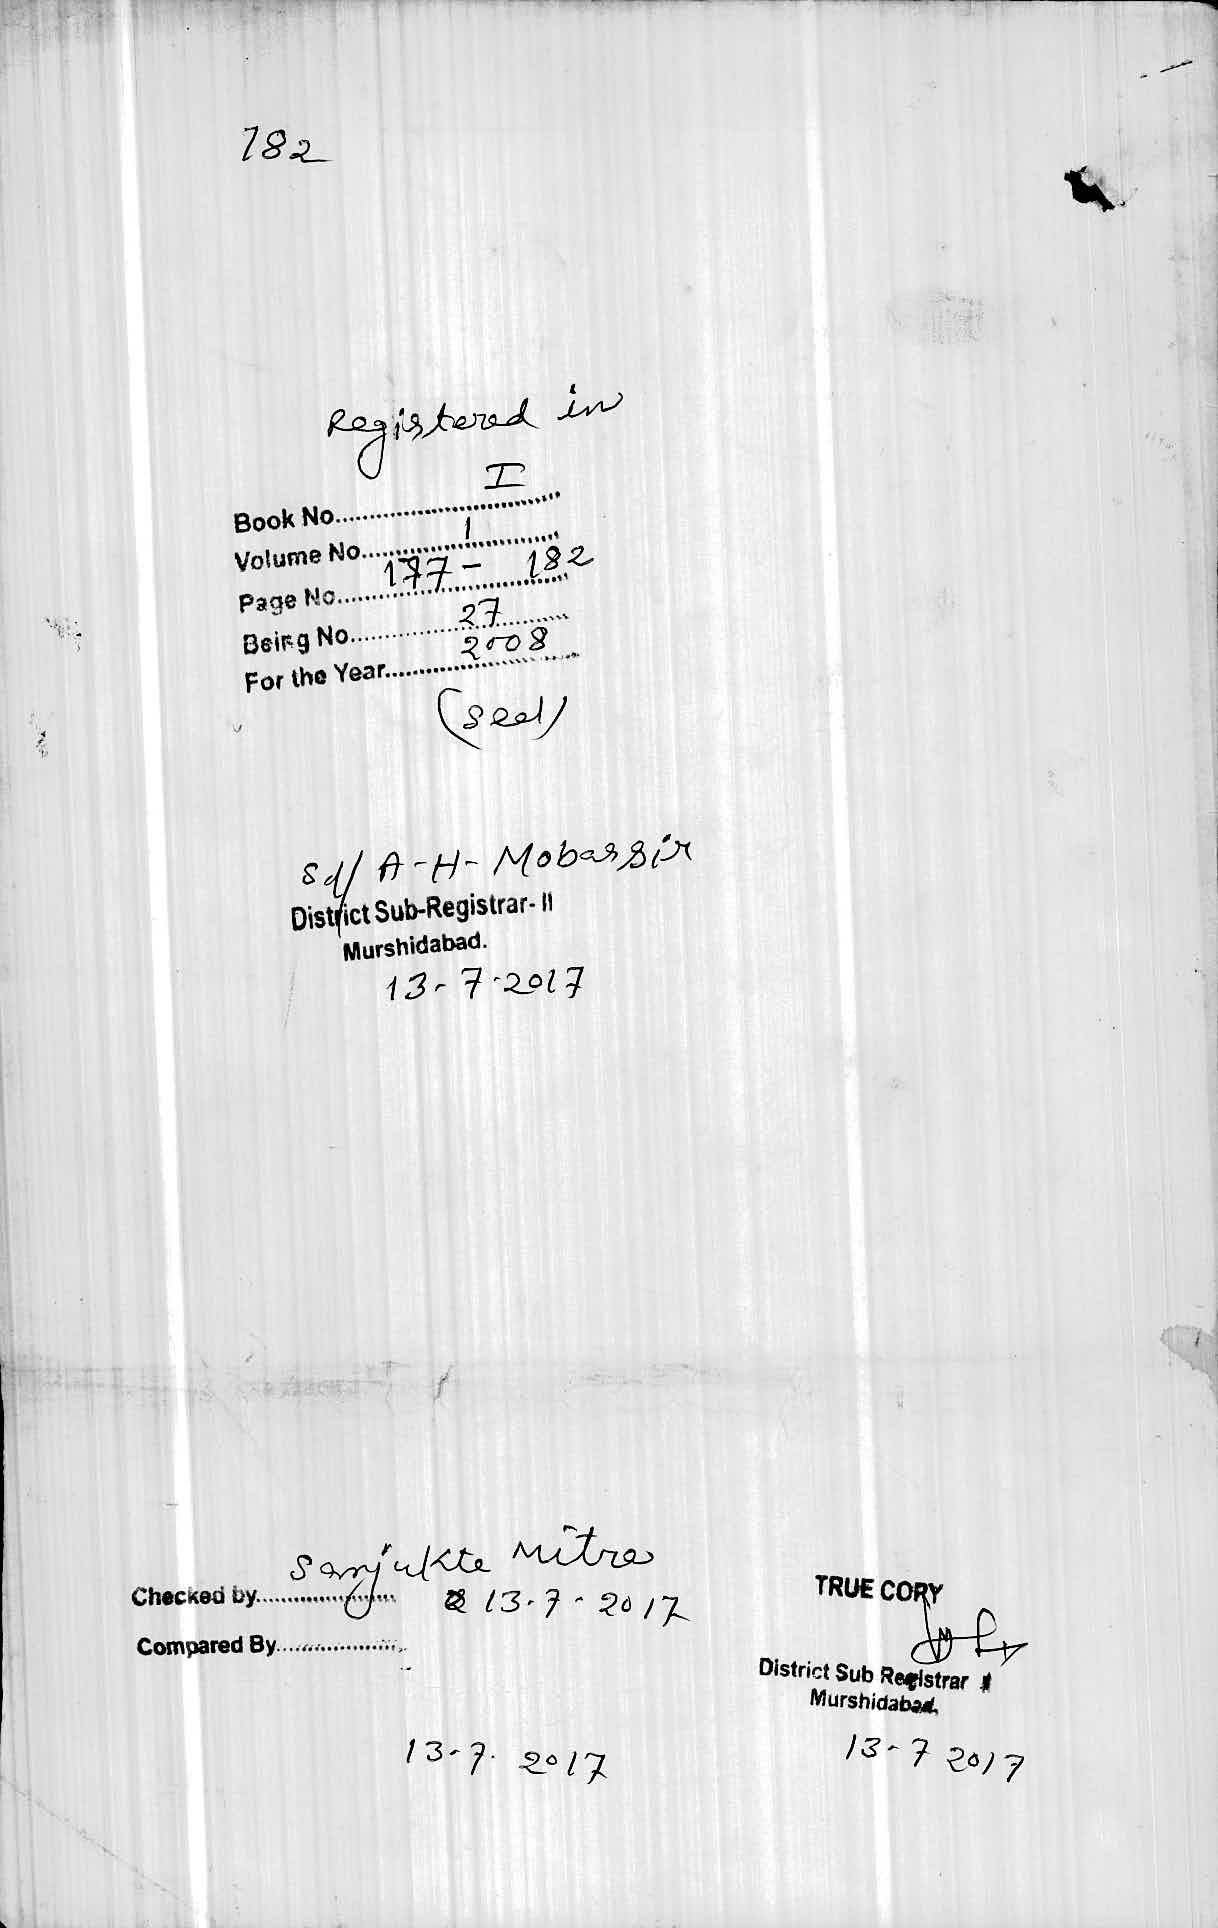 182
Registered in
Book No. I
Volume No. 1
Page No. 177 - 182
Being No. 27
For the Year 2008
(Seal)
Sd/ A-H-Mobassir
District Sub-Registrar-II
Murshidabad.
13-7-2017
Sanjukta Mitra
Checked by 13-7-2017
Compared By
TRUE COPY
District Sub Registrar
Murshidabad.
13-7-2017
13-7 2017